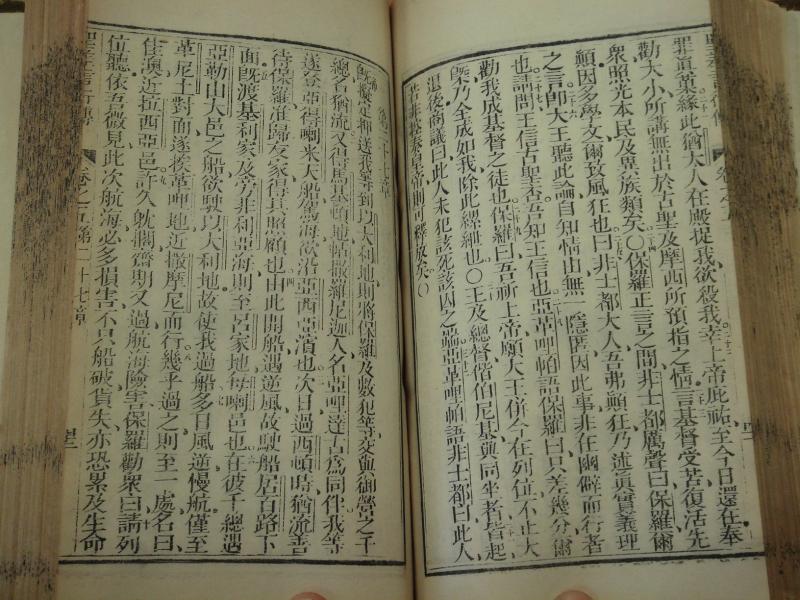 罪眞葉此猶大人在殿捉我欲殺我幸上帝庇祐至今日還在奉
勸大小所講無出於古聖及摩西所預指之情言基督受苦復活先
衆照光本民及異族類矣〇保羅正言之間非士都厲聲曰保羅爾
顛因多學文爾致風狂也曰非士都大人吾弗顛狂乃述眞實義理
之言卽大王聽此論自知情由無一隱匿因此事非在幽僻而行者
也請問王信古聖否吾知王信也亞革哩帕語保羅曰只差幾分爾
勸我成基督之徒也保羅曰吾祈上帝願大王併今在列位不止大
槩乃全成如我除此縲絏也〇王及總督偕伯尼基與同坐者皆起
退後商議曰此人未犯該死該囚之端亞革哩帕語非士都曰此人
若非投奏皇帝則可釋放矣〇
第二十七章
旣擬定押送我等到以大利地則將保羅及數犯等交與御營之千
總名猶流又得馬其頓地帖撒羅尼迦人名亞哩達古爲同伴我等
遂登亞得喇米大船駕海欲沿亞西亞濱也次日過西頓時猶流善
待保羅准歸友家得其照顧也由此開船遇逆風故駛船居百路下
面旣渡基利家及旁非利亞海則至呂家地每喇邑也在彼千總遇
亞勒山大邑之船欲駛以大利地故使我過船多日風逆慢航僅至
革尼土對面遂挨革哩地近撒摩尼而行幾乎過之則至一處名曰
佳澳近拉西亞邑許久躭擱齋期又過航海險害保羅勸衆曰請列
位聽依吾微見此次航海必多損害不只船破貨失亦恐累及生命
言行傳 卷之五第二十七章